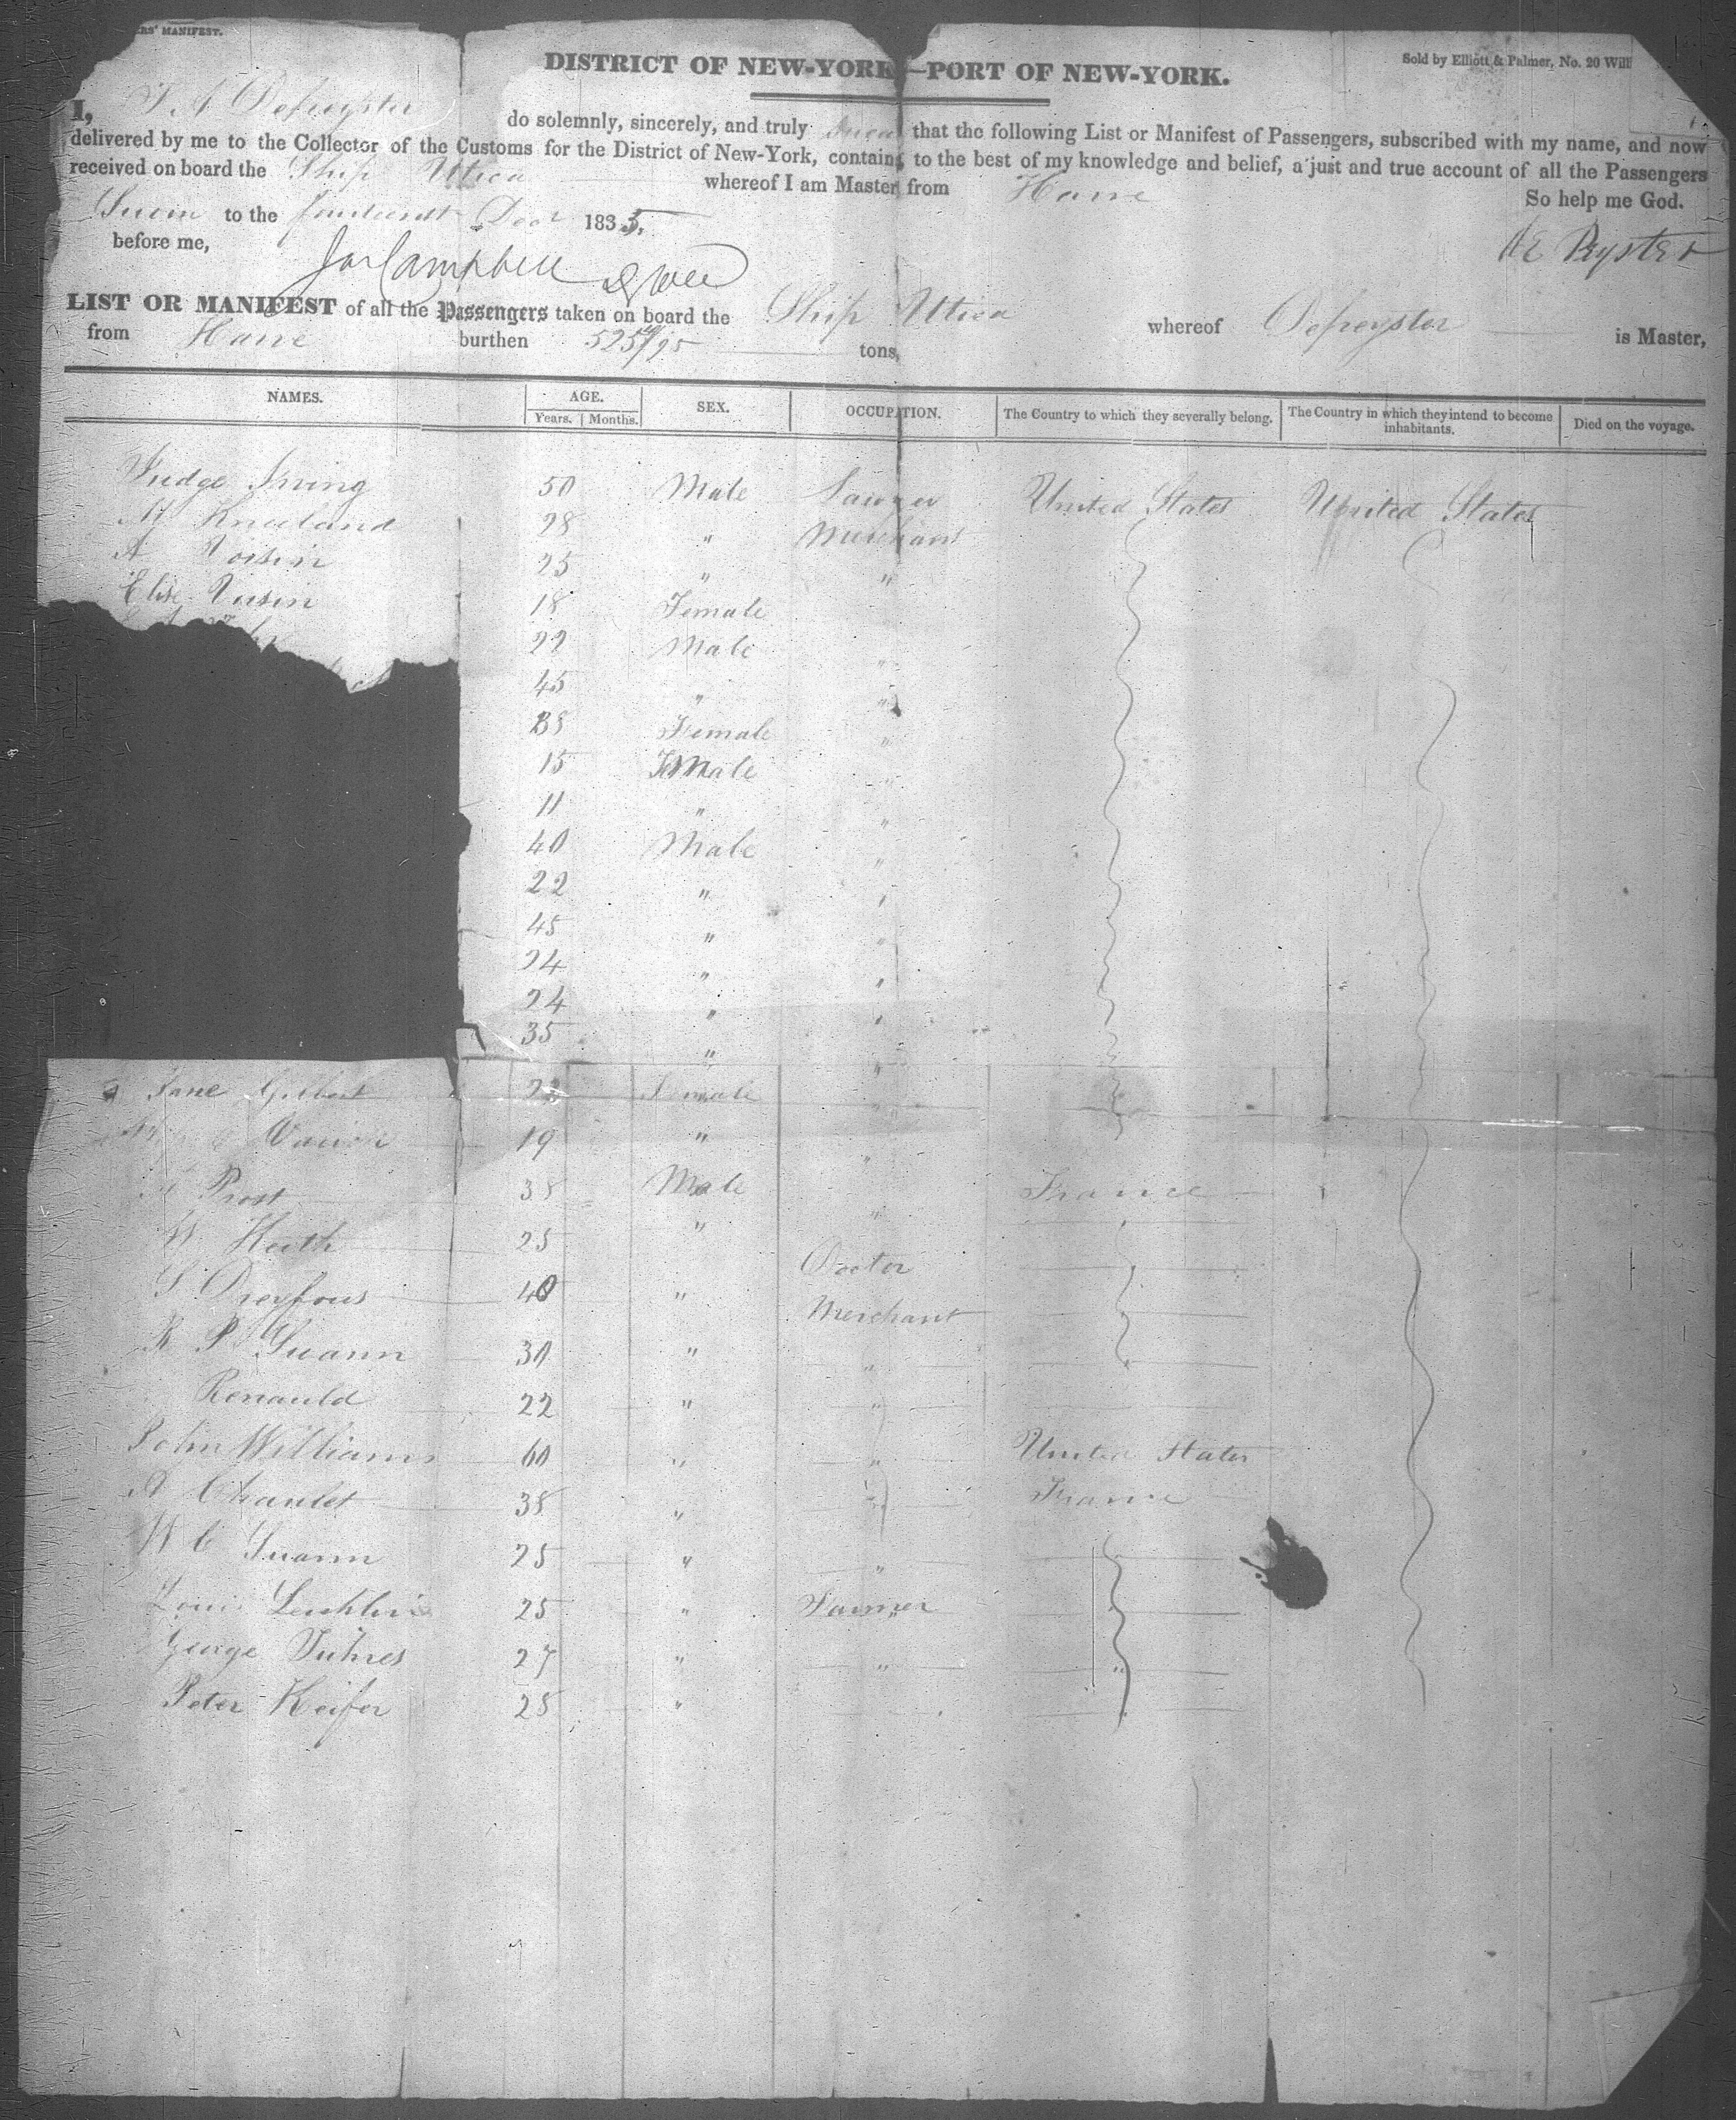 ERS' MANIFEST.
DISTRICT OF NEW-YORK—PORT OF NEW-YORK.
Sold by Elliott & Palmer, No. 20 Will
I, Depeyster do solemnly, sincerely, and truly that the following List or Manifest of Passengers, subscribed with my name, and now
delivered by me to the Collector of the Customs for the District of New-York, contains to the best of my knowledge and belief, a just and true account of all the Passengers
received on board the Ship Utica whereof I am Master from Havre
So help me God.
Sworn to the fourteenth Decr 1835,
before me,
Jas Campbell
De Peyster
LIST OR MANIFEST of all the Passengers taken on board the Ship Utica whereof Depeyster is Master,
from Havre burthen 525 /95 tons,
NAMES. AGE. SEX. OCCUPATION. The Country to which they severally belong. The Country in which they intend to become inhabitants. Died on the voyage.
Years. Months.
Judge Irving 50 Male Lawyer United States United States
M Kneeland 28 " Merchant
A Voisin 25 " "
Elise Voisin 18 Female
22 Male "
45 " "
38 Female "
15 Female "
11 " "
40 Male "
22 " "
45 " "
24 " "
24 " "
35 " "
Jane Gilbert 23 Female "
19 " "
Prost 38 Male " France
Keith 25 "
S Dreyfous 40 " Doctor
Merchant
R P Suann 30 " "
Renauld 22 " "
John Williams 60 " " United States
A Chaulet 38 " " France
W C Suann 25 " "
Louis 25 " Farmer
George 27 " " "
Peter Keifer 25 "